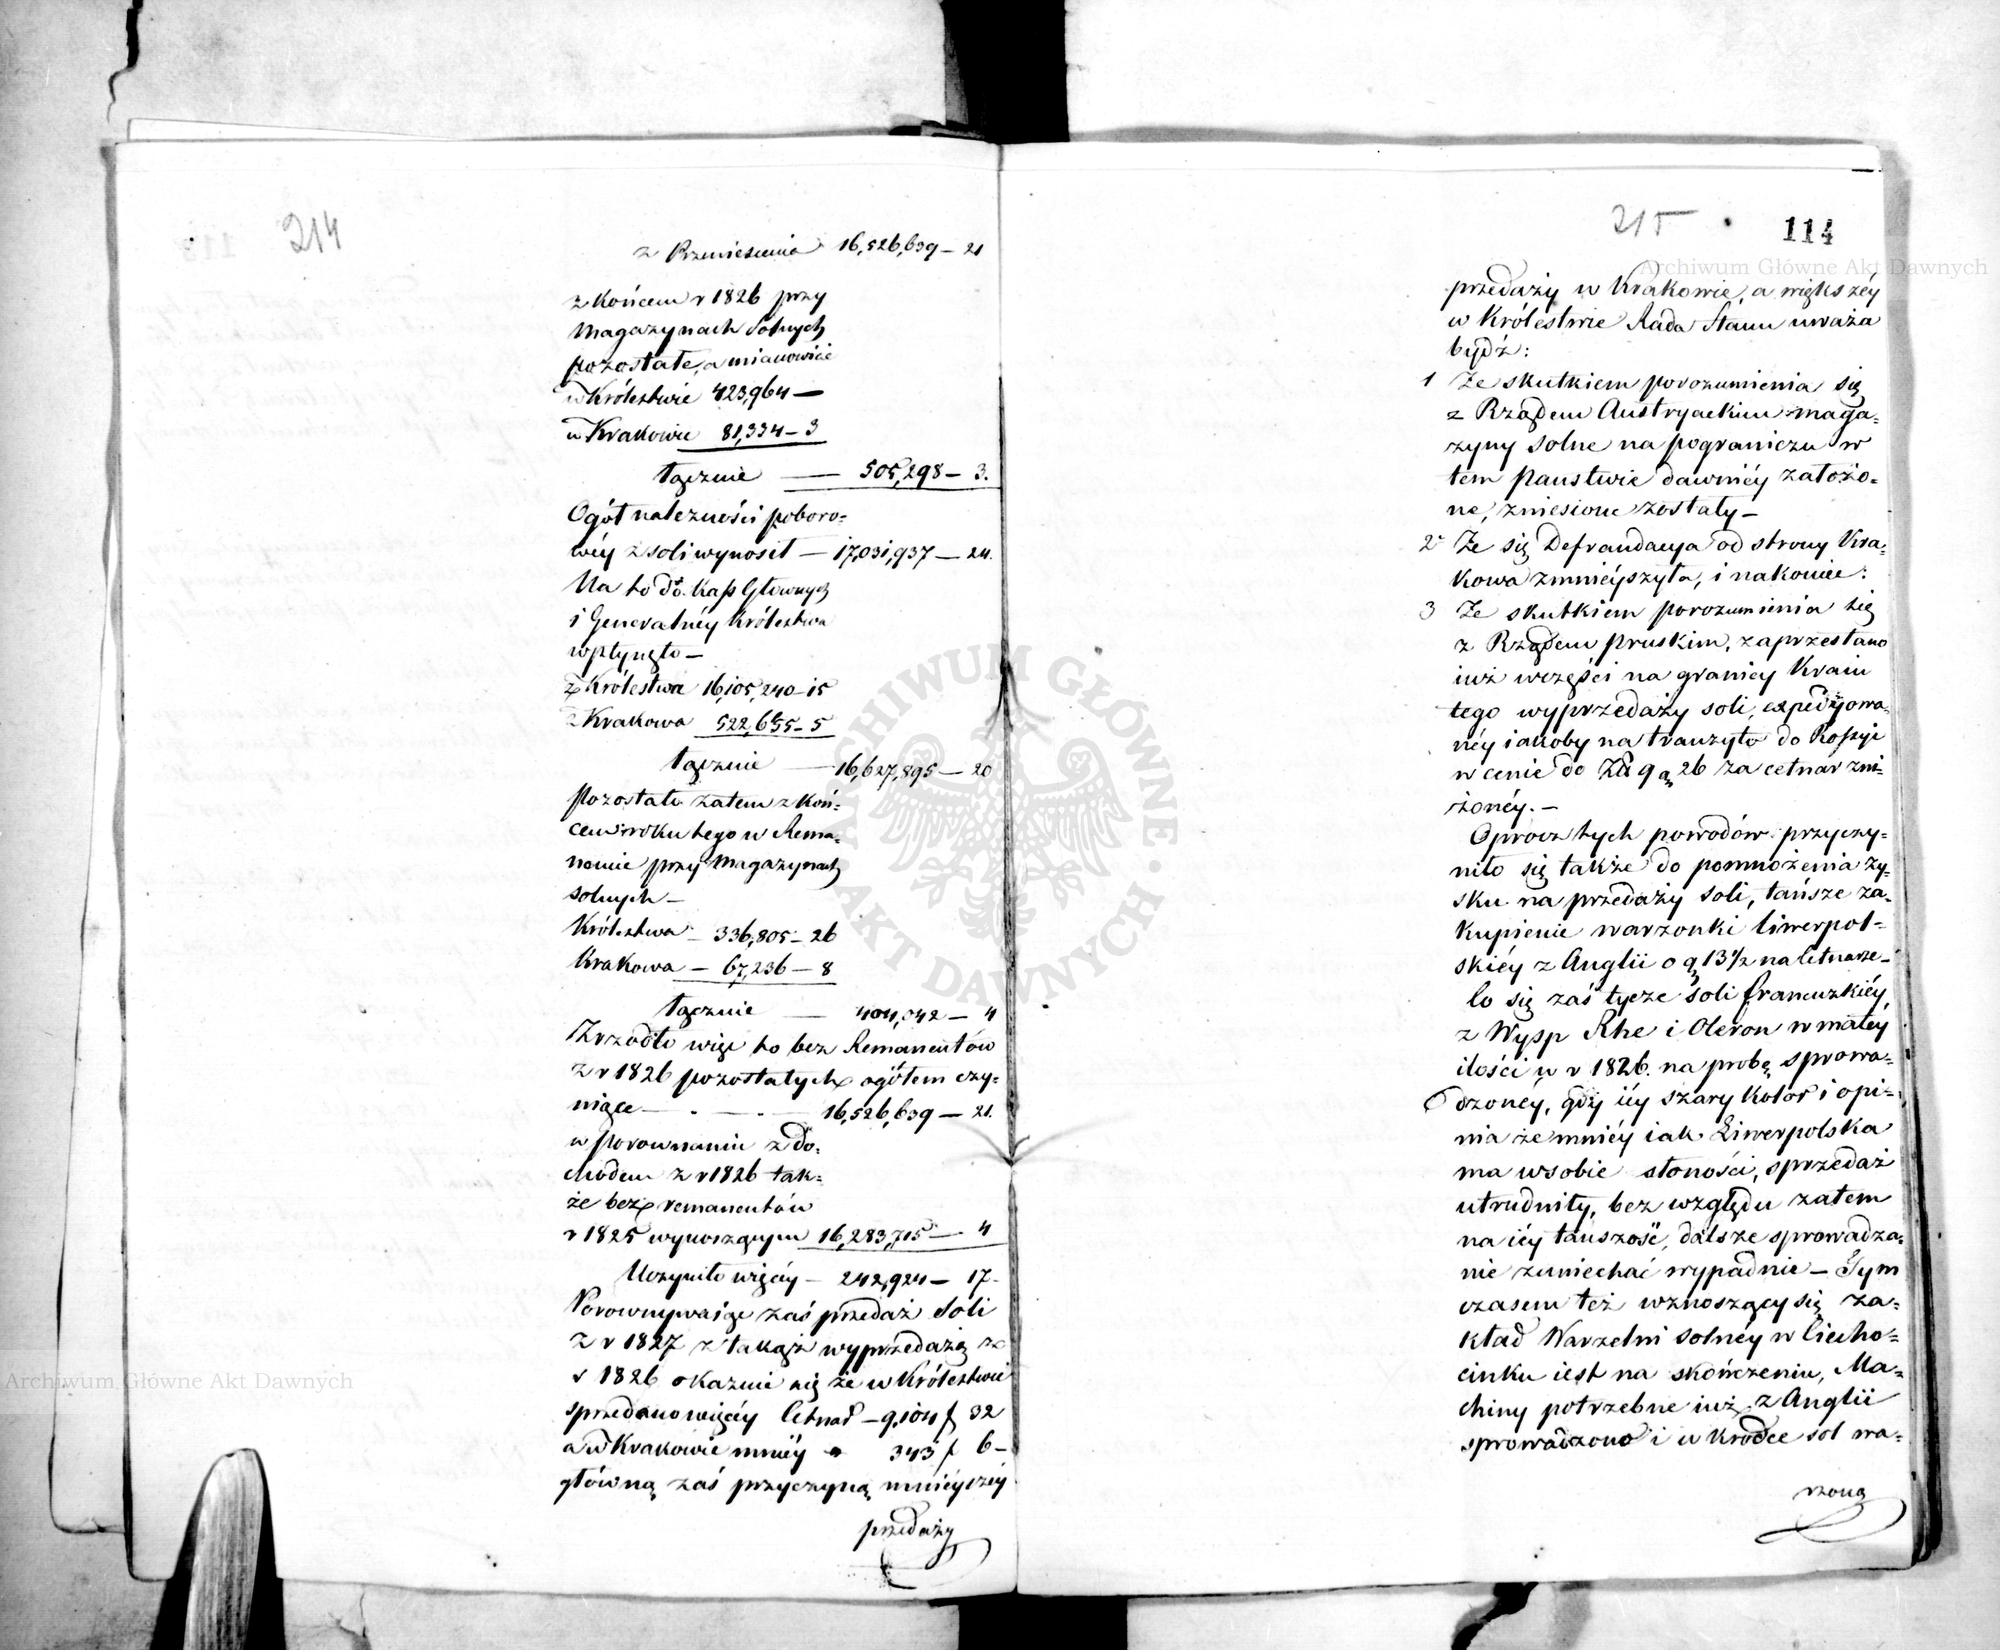 214
z Przeniesienia 16,526,639 – 21
z końcem r 1826 przy
Magazynach Solnych
pozostałe, a mianowicie
w Królestwie 423,964 –
w Krakowie 81,334 – 3
łącznie — 505,298 – 3.
Ogół należności poboro=
wéy z soli wynosił – 17,031,937 – 24.
Na to do Kass Głownych
i Generalnéy Królestwa
wpłynęło –
z Królestwa 16,105,240 – 15
z Krakowa 522,655 – 5
łącznie — 16,627,895 – 20
Pozostało zatem z koń=
cem roku tego w Rema=
nencie przy Magazynach
solnych –
Królestwa – 336,805 – 26
Krakowa – 67,236 – 8
łącznie — 404,042 – 4
Zrzodło więc to bez Remanentów
z r 1826 pozostałych ogółem czy=
niące — . — . — 16,526,639 – 21.
w porownaniu z do=
chodem z r 1826 tak=
że bez remanentów
r 1825 wynoszącym 16,283,715 — 4
Uczyniło więcéy – 242,924 – 17–
Porownywaiąc zaś przedaż Soli
z r 1827 z takąż wyprzedażą z
r 1826 okazuie się że w Królestwie
sprzedano więcéy Cetnar – 9,104 f 32
a w Krakowie mniéy " 343 f 6 –
główną zaś przyczyną mnieyszéy
przedaży
215 114
przedaży w Krakowie, a większéy
w Królestwie Rada Stanu uważa
bydź:
1 Ze skutkiem porozumienia się
z Rządem Austryackim maga=
zyny solne na pograniczu w
tem Panstwie dawniéy założo=
ne, zniesione zostały –
2 Że się Defraudacya od strony Kra=
kowa zmnieyszyła, i nakoniec:
3 Że skutkiem porozumienia się
z Rządem Pruskim, zaprzestano
iuż wczęści na granicy Kraiu
tego wyprzedaży soli, expedyowa=
néy iakoby na tranzyto do Rossyi
w cenie do Zł 9 g 26 za cetnar zni=
żonéy. –
Oprocz tych powodów przyczy=
niło się także do pomnożenia zy=
sku na przedaży soli, tańsze za=
kupienie warzonki Liwerpol=
skiéy z Anglii o g 13 1/2 na Cetnarze –
Co się zaś tycze soli francuzkiéy,
z Wysp Rhe i Oleron w małéy
ilości w r 1826. na probę sprowa=
dzonéy, gdy iéy szary kolor i opi=
nia że mniéy iak Liwerpolska
ma wsobie słoności, sprzedaż
utrudniły, bez względu zatem
na iéy tańszość, dalsze sprowadza=
nie zaniechać wypadnie – Tym
czasem też wznoszący się Za=
kład Warzelni solnéy w Ciecho=
cinku iest na skończeniu, Ma=
chiny potrzebne iuż z Anglii
sprowadzono i w krodce sol wa=
rzoną
Archiwum Główne Akt Dawnych
Archiwum Główne Akt Dawnych
ARCHIWUM GŁÓWNE · AKT DAWNYCH ·